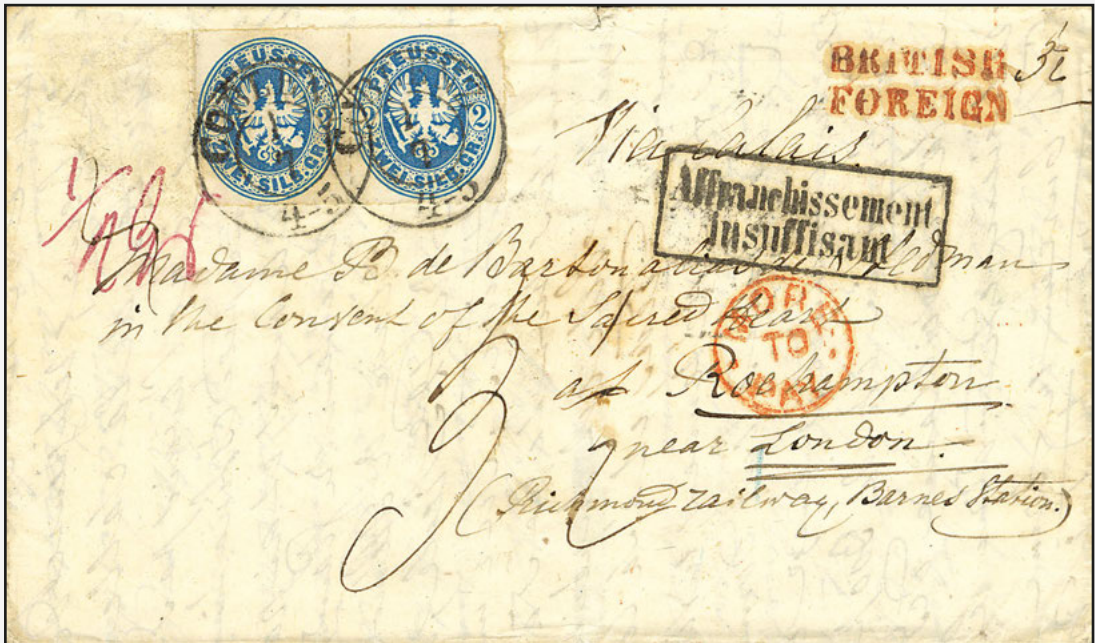 PREUSSEN
2 2
ZWEI SILB. GR.
PREUSSEN
2 2
ZWEI SILB. GR.
4-5
4-5
BRITISH
FOREIGN
Via Calais.
Affranchissement
insuffisant
Madame B. de Barton alias
in the Convent of the Sacred Heart
MORE
TO
PAY
at Roehampton
near London.
(Richmond railway, Barnes Station.)